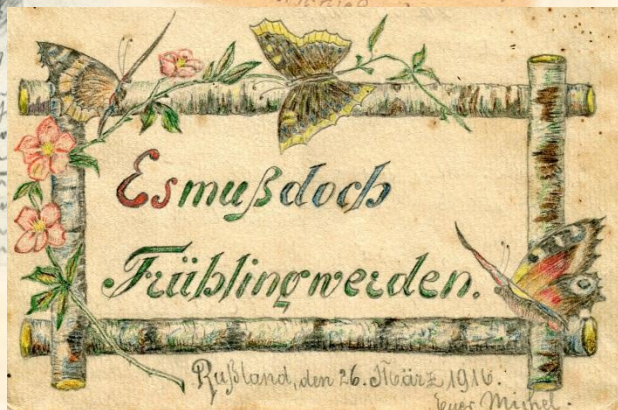 Es muß doch
Frühling werden.
Rußland, den 26. März 1916.
Euer Michel.